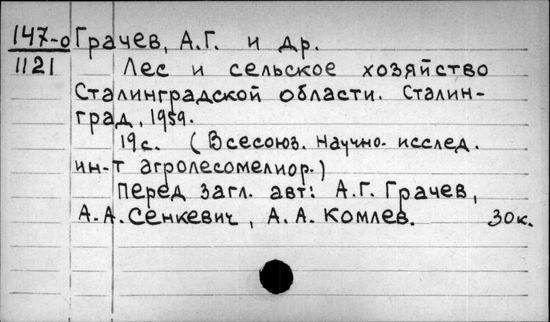 147-о Грачев, А.Г. и др.
1121 Лес и сельское хозяйство
Сталинградской области. Сталин-
град, 1959.
19с. (Всесоюз. научно-исслед.
ин-т агролесомелиор.)
Перед загл. авт: А.Г. Грачев,
А.А. Сенкевич, А.А. Комлев. 30к.